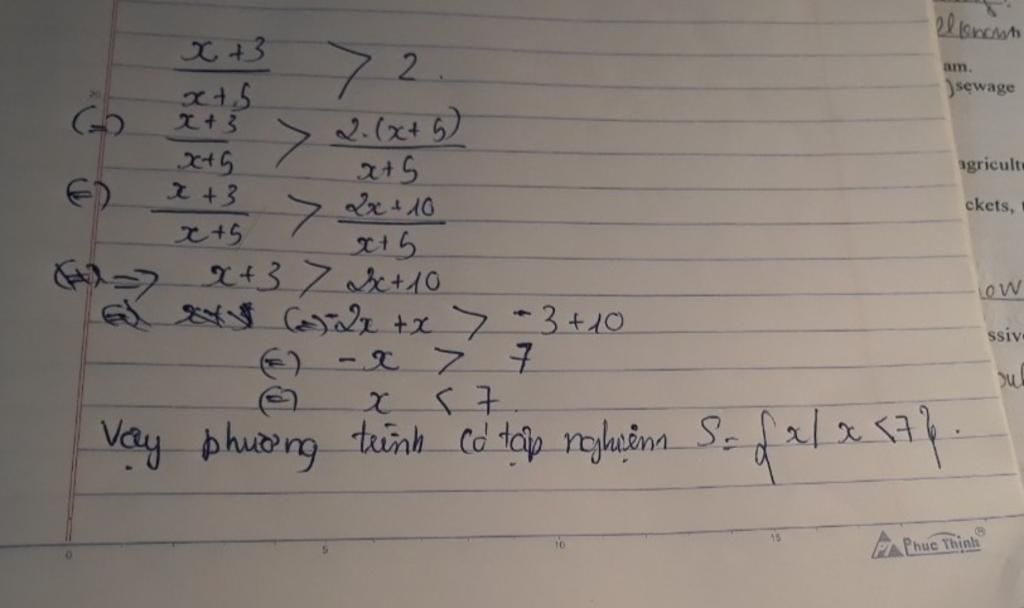 x+3 / x+5 > 2.
(=) x+3 / x+5 > 2.(x+5) / x+5
(=) x+3 / x+5 > 2x+10 / x+5
=> x+3 > 2x+10
(=) -2x +x > -3+10
(=) -x > 7
(=) x < 7.
Vậy phương trình có tập nghiệm S= {x| x <7}.
0 5 10 15
Phuc Thinh
am.
sewage
agricultu
ckets,
ow
ssiv